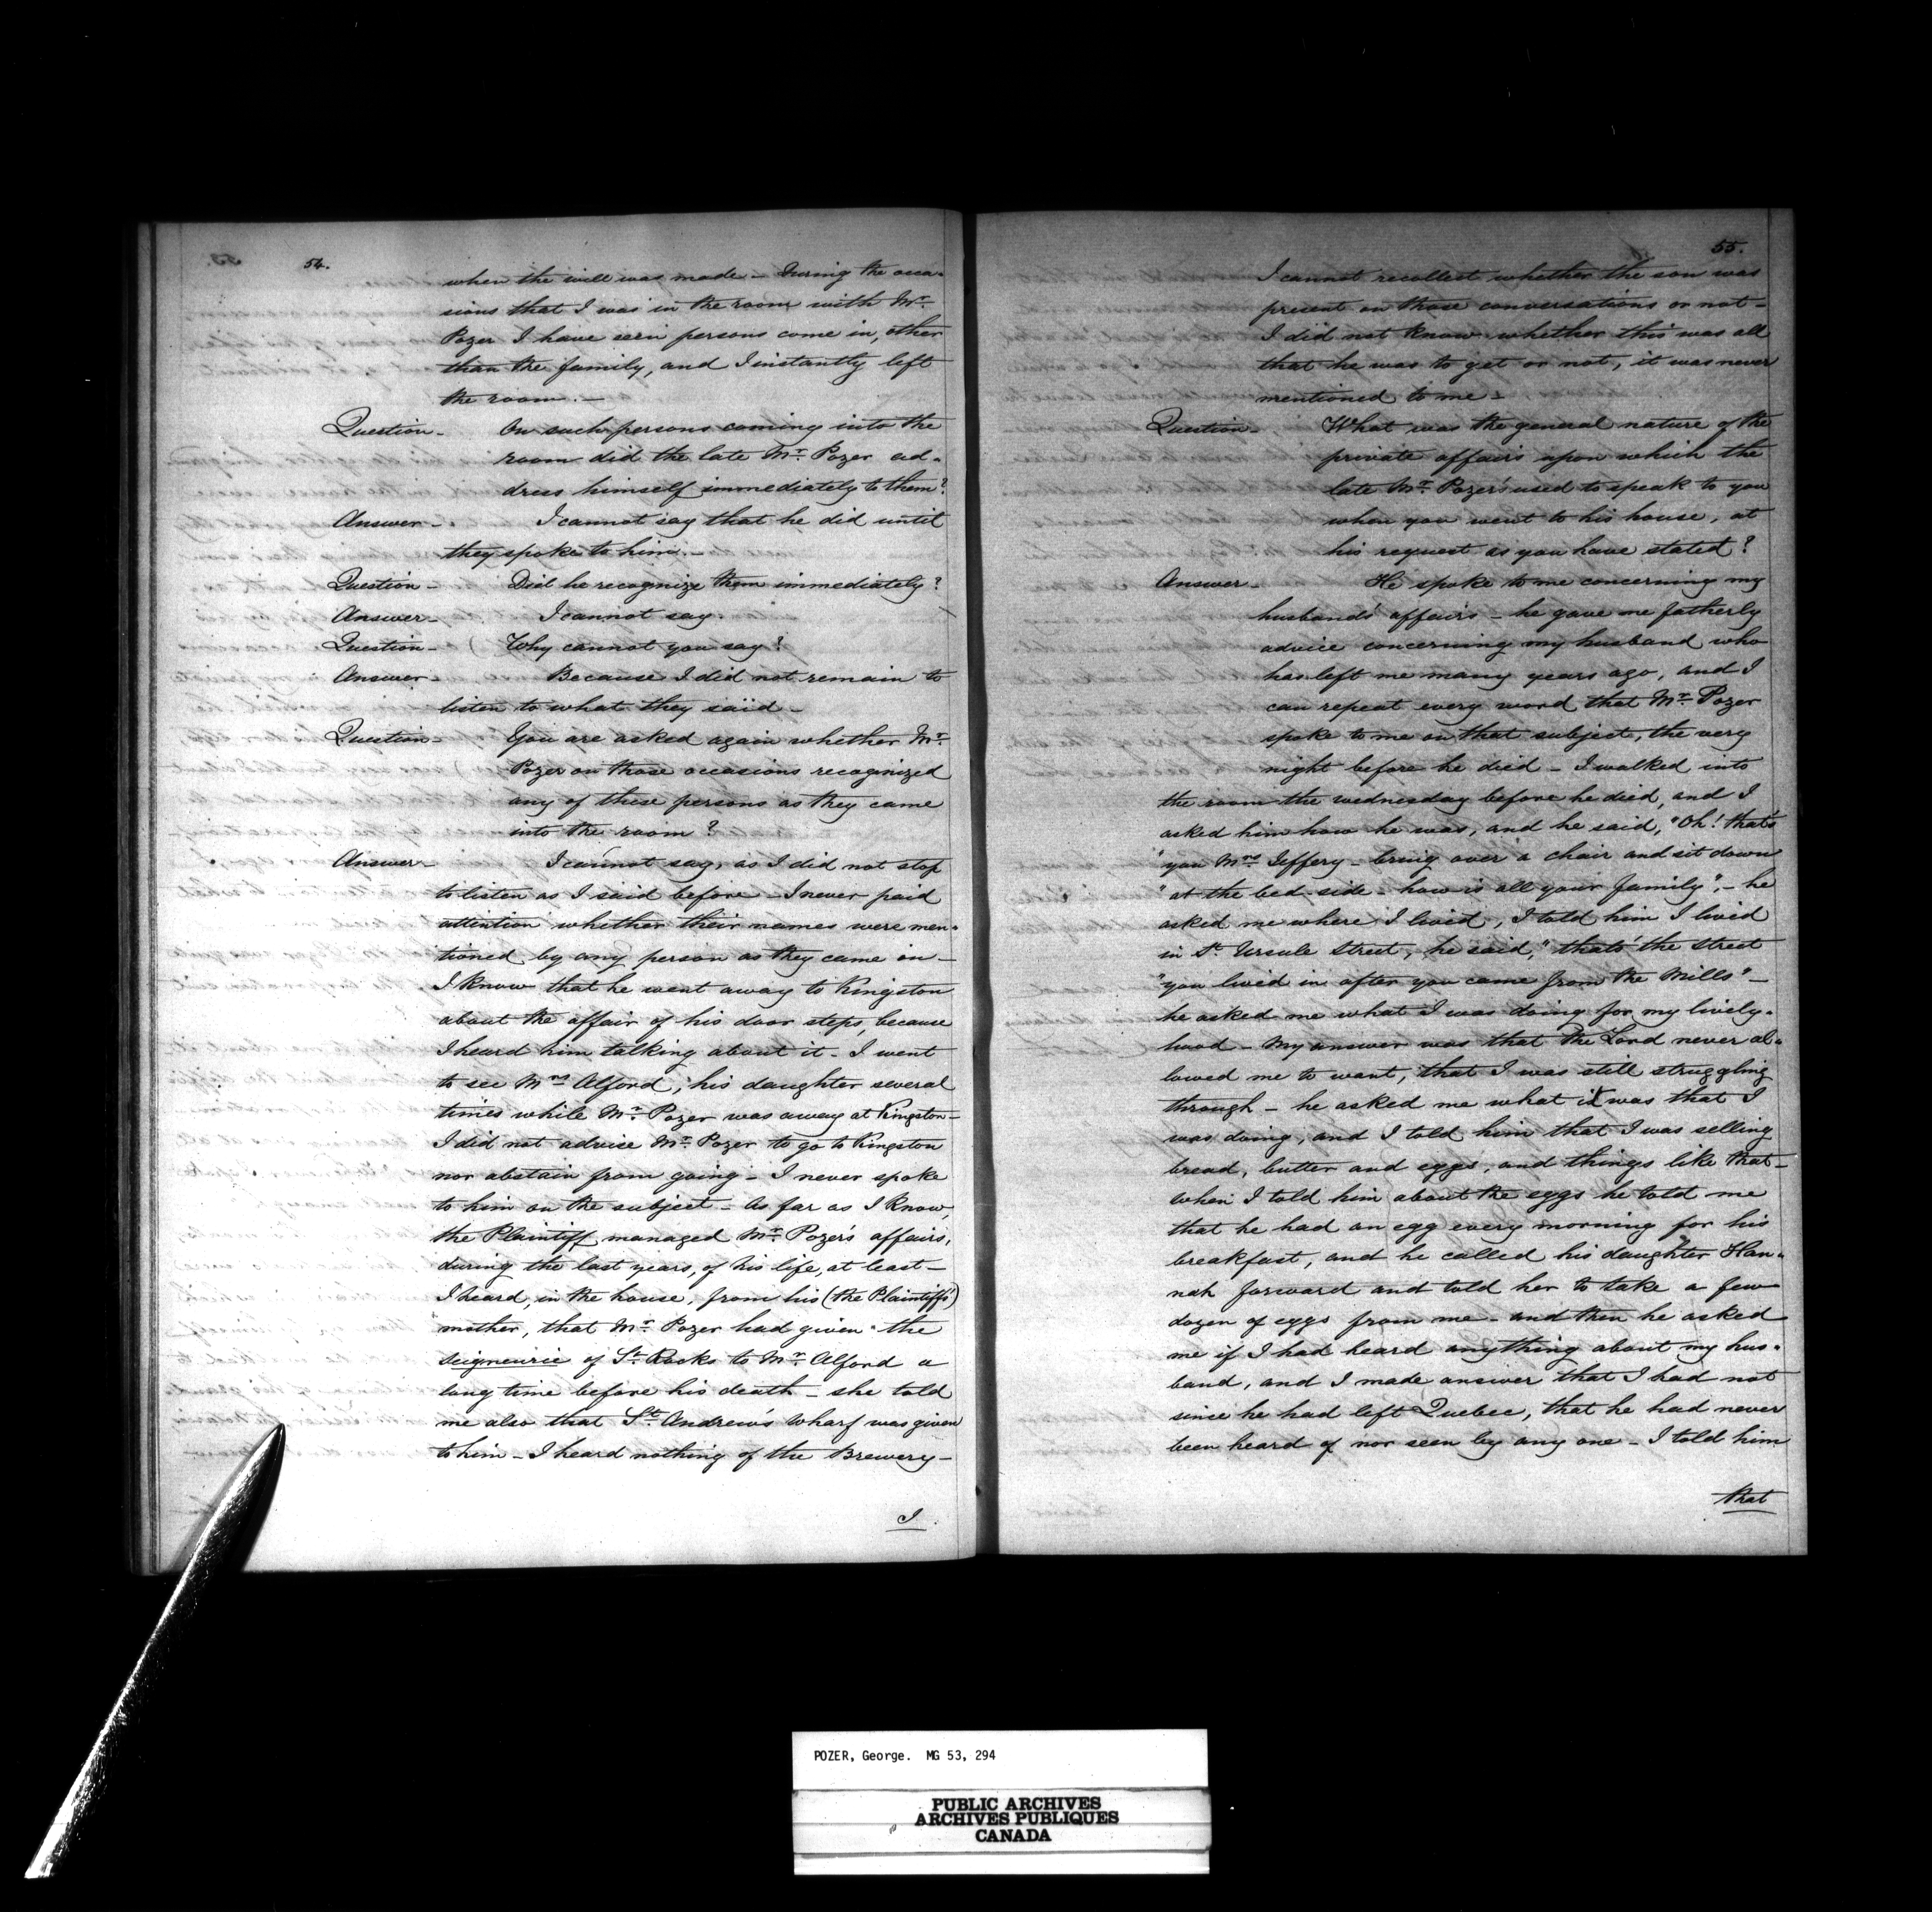 54.
when the will was made – During the occa-
sions that I was in the room with Mr.
Pozer I have seen persons come in, other
than the family, and I instantly left
the room. –
Question – On such persons coming into the
room did the late Mr. Pozer ad-
dress himself immediately to them?
Answer – I cannot say that he did until
they spoke to him. –
Question – Did he recognize them immediately?
Answer – I cannot say.
Question – Why cannot you say?
Answer – Because I did not remain to
listen to what they said –
Question – You are asked again whether Mr.
Pozer on those occasions recognized
any of these persons as they came
into the room?
Answer – I cannot say, as I did not stop
to listen as I said before – I never paid
attention whether their names were men-
tioned by any person as they came in –
I know that he went away to Kingston
about the affair of his door steps, because
I heard him talking about it – I went
to see Mrs Alford, his daughter several
times while Mr. Pozer was away at Kingston –
I did not advise Mr. Pozer to go to Kingston
nor abstain from going – I never spoke
to him on the subject – As far as I know,
the Plaintiff managed Mr. Pozer's affairs,
during the last years, of his life, at least –
I heard, in the house, from his (the Plaintiff's)
mother, that Mr. Pozer had given the
seigneurie of St. Rocks to Mr. Alford a
long time before his death – she told
me also that St. Andrew's Wharf was given
to him – I heard nothing of the Brewery –
I
55.
I cannot recollect whether the son was
present on those conversations or not –
I did not know whether this was all
that he was to get or not, it was never
mentioned to me –
Question – What was the general nature of the
private affairs upon which the
late Mr. Pozer's used to speak to you
when you went to his house, at
his request as you have stated?
Answer – He spoke to me concerning my
husbands' affairs – he gave me fatherly
advice concerning my husband who
has left me many years ago, and I
can repeat every word that Mr. Pozer
spoke to me on that subject, the very
night before he died – I walked into
the room the wednesday before he died, and I
asked him how he was, and he said, "Oh! that's
"you Mrs Jeffery – bring over a chair and sit down
"at the bed-side – how is all your family", – he
asked me where I lived, I told him I lived
in St. Ursule Street, he said, "thats' the street
"you lived in after you came from the Mills" –
he asked me what I was doing for my lively-
hood – My answer was that the Lord never al-
lowed me to want, that I was still struggling
through – he asked me what it was that I
was doing, and I told him that I was selling
bread, butter and eggs, and things like that –
when I told him about the eggs he told me
that he had an egg every morning for his
breakfast, and he called his daughter Han-
nah forward and told her to take a few
dozen of eggs from me – and then he asked
me if I had heard anything about my hus-
band, and I made answer that I had not
since he had left Quebec, that he had never
been heard of nor seen by any one – I told him
that
POZER, George. MG 53, 294
PUBLIC ARCHIVES
ARCHIVES PUBLIQUES
CANADA